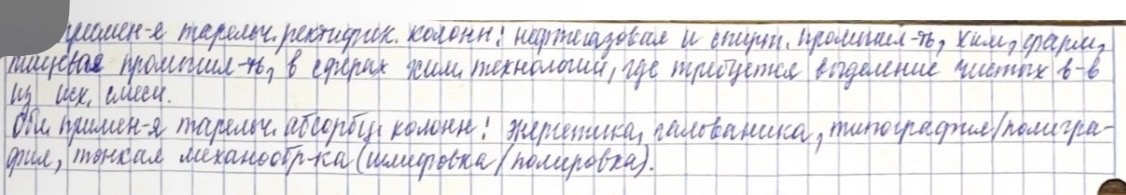 примен-я тарельч. ректифик. колонн: нефтегазовая и спирт. промышл-ть, хим, фарм,
пищевая промышл-ть, в сферах хим. технологии, где требуется выделение чистых в-в
из исх. смеси.
Обл. примен-я тарельч. абсорбц. колонн: энергетика, гальваника, типография/полигра-
фия, тонкая механообр-ка (шлифовка/полировка).